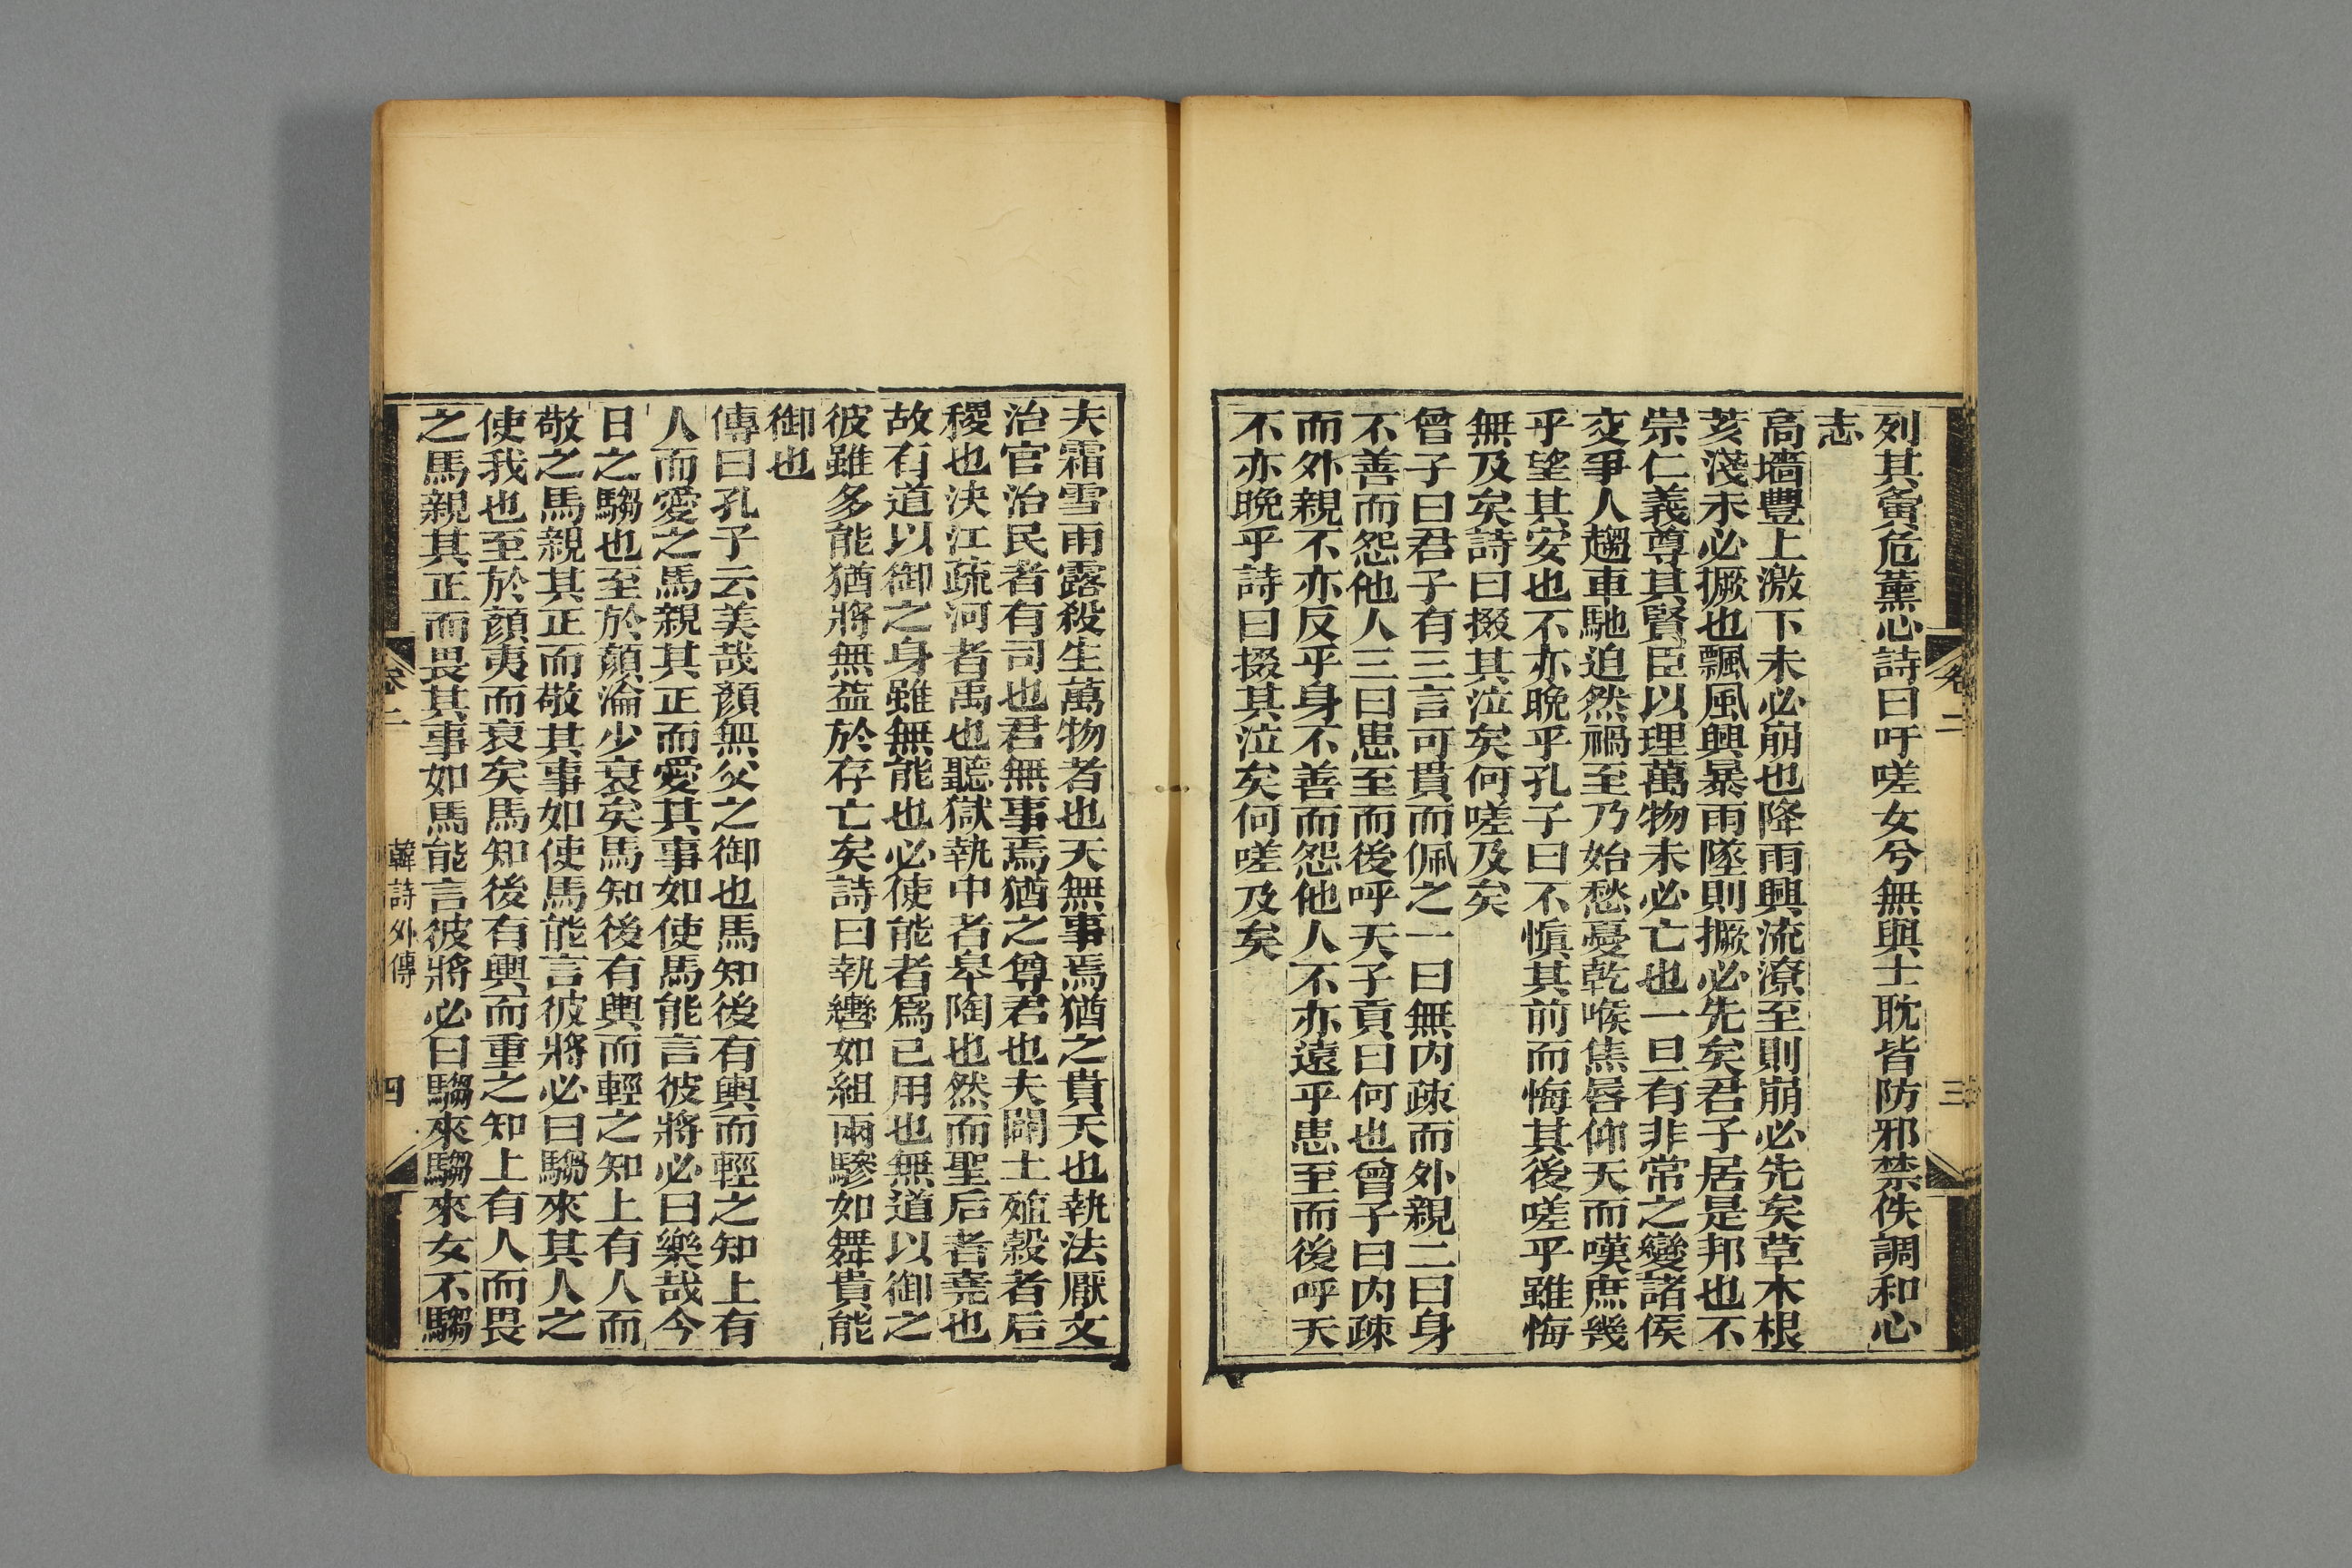 列其夤危薰心詩曰吁嗟女兮無與士耽皆防邪禁佚調和心
志
高墻豐上激下未必崩也降雨興流潦至則崩必先矣草木根
荄淺未必撅也飄風興暴雨墜則撅必先矣君子居是邦也不
崇仁義尊其賢臣以理萬物未必亡也一旦有非常之變諸侯
交爭人趨車馳迫然禍至乃始愁憂乾喉焦唇仰天而嘆庶幾
乎望其安也不亦晚乎孔子曰不慎其前而悔其後嗟乎雖悔
無及矣詩曰掇其泣矣何嗟及矣
曾子曰君子有三言可貫而佩之一曰無内疎而外親二曰身
不善而怨他人三曰患至而後呼天子貢曰何也曾子曰内疎
而外親不亦反乎身不善而怨他人不亦遠乎患至而後呼天
不亦晚乎詩曰掇其泣矣何嗟及矣
卷二
三
夫霜雪雨露殺生萬物者也天無事焉猶之貴天也執法厭文
治官治民者有司也君無事焉猶之尊君也夫闢土殖穀者后
稷也決江疏河者禹也聽獄執中者皋陶也然而聖后者堯也
故有道以御之身雖無能也必使能者爲已用也無道以御之
彼雖多能猶將無益於存亡矣詩曰執轡如組兩驂如舞貴能
御也
傳曰孔子云美哉顔無父之御也馬知後有輿而輕之知上有
人而愛之馬親其正而愛其事如使馬能言彼將必曰樂哉今
日之騶也至於顔淪少衰矣馬知後有輿而輕之知上有人而
敬之馬親其正而敬其事如使馬能言彼將必曰騶來其人之
使我也至於顔夷而衰矣馬知後有輿而重之知上有人而畏
之馬親其正而畏其事如馬能言彼將必曰騶來騶來女不騶
卷二
韓詩外傳
四